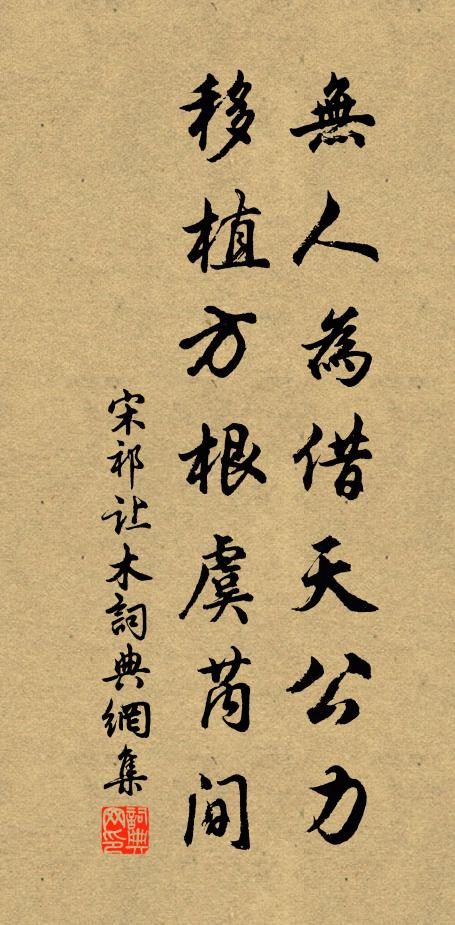 無人為借天公力
移植方根虞芮间
宋祁让木詞典網集
詞典網印